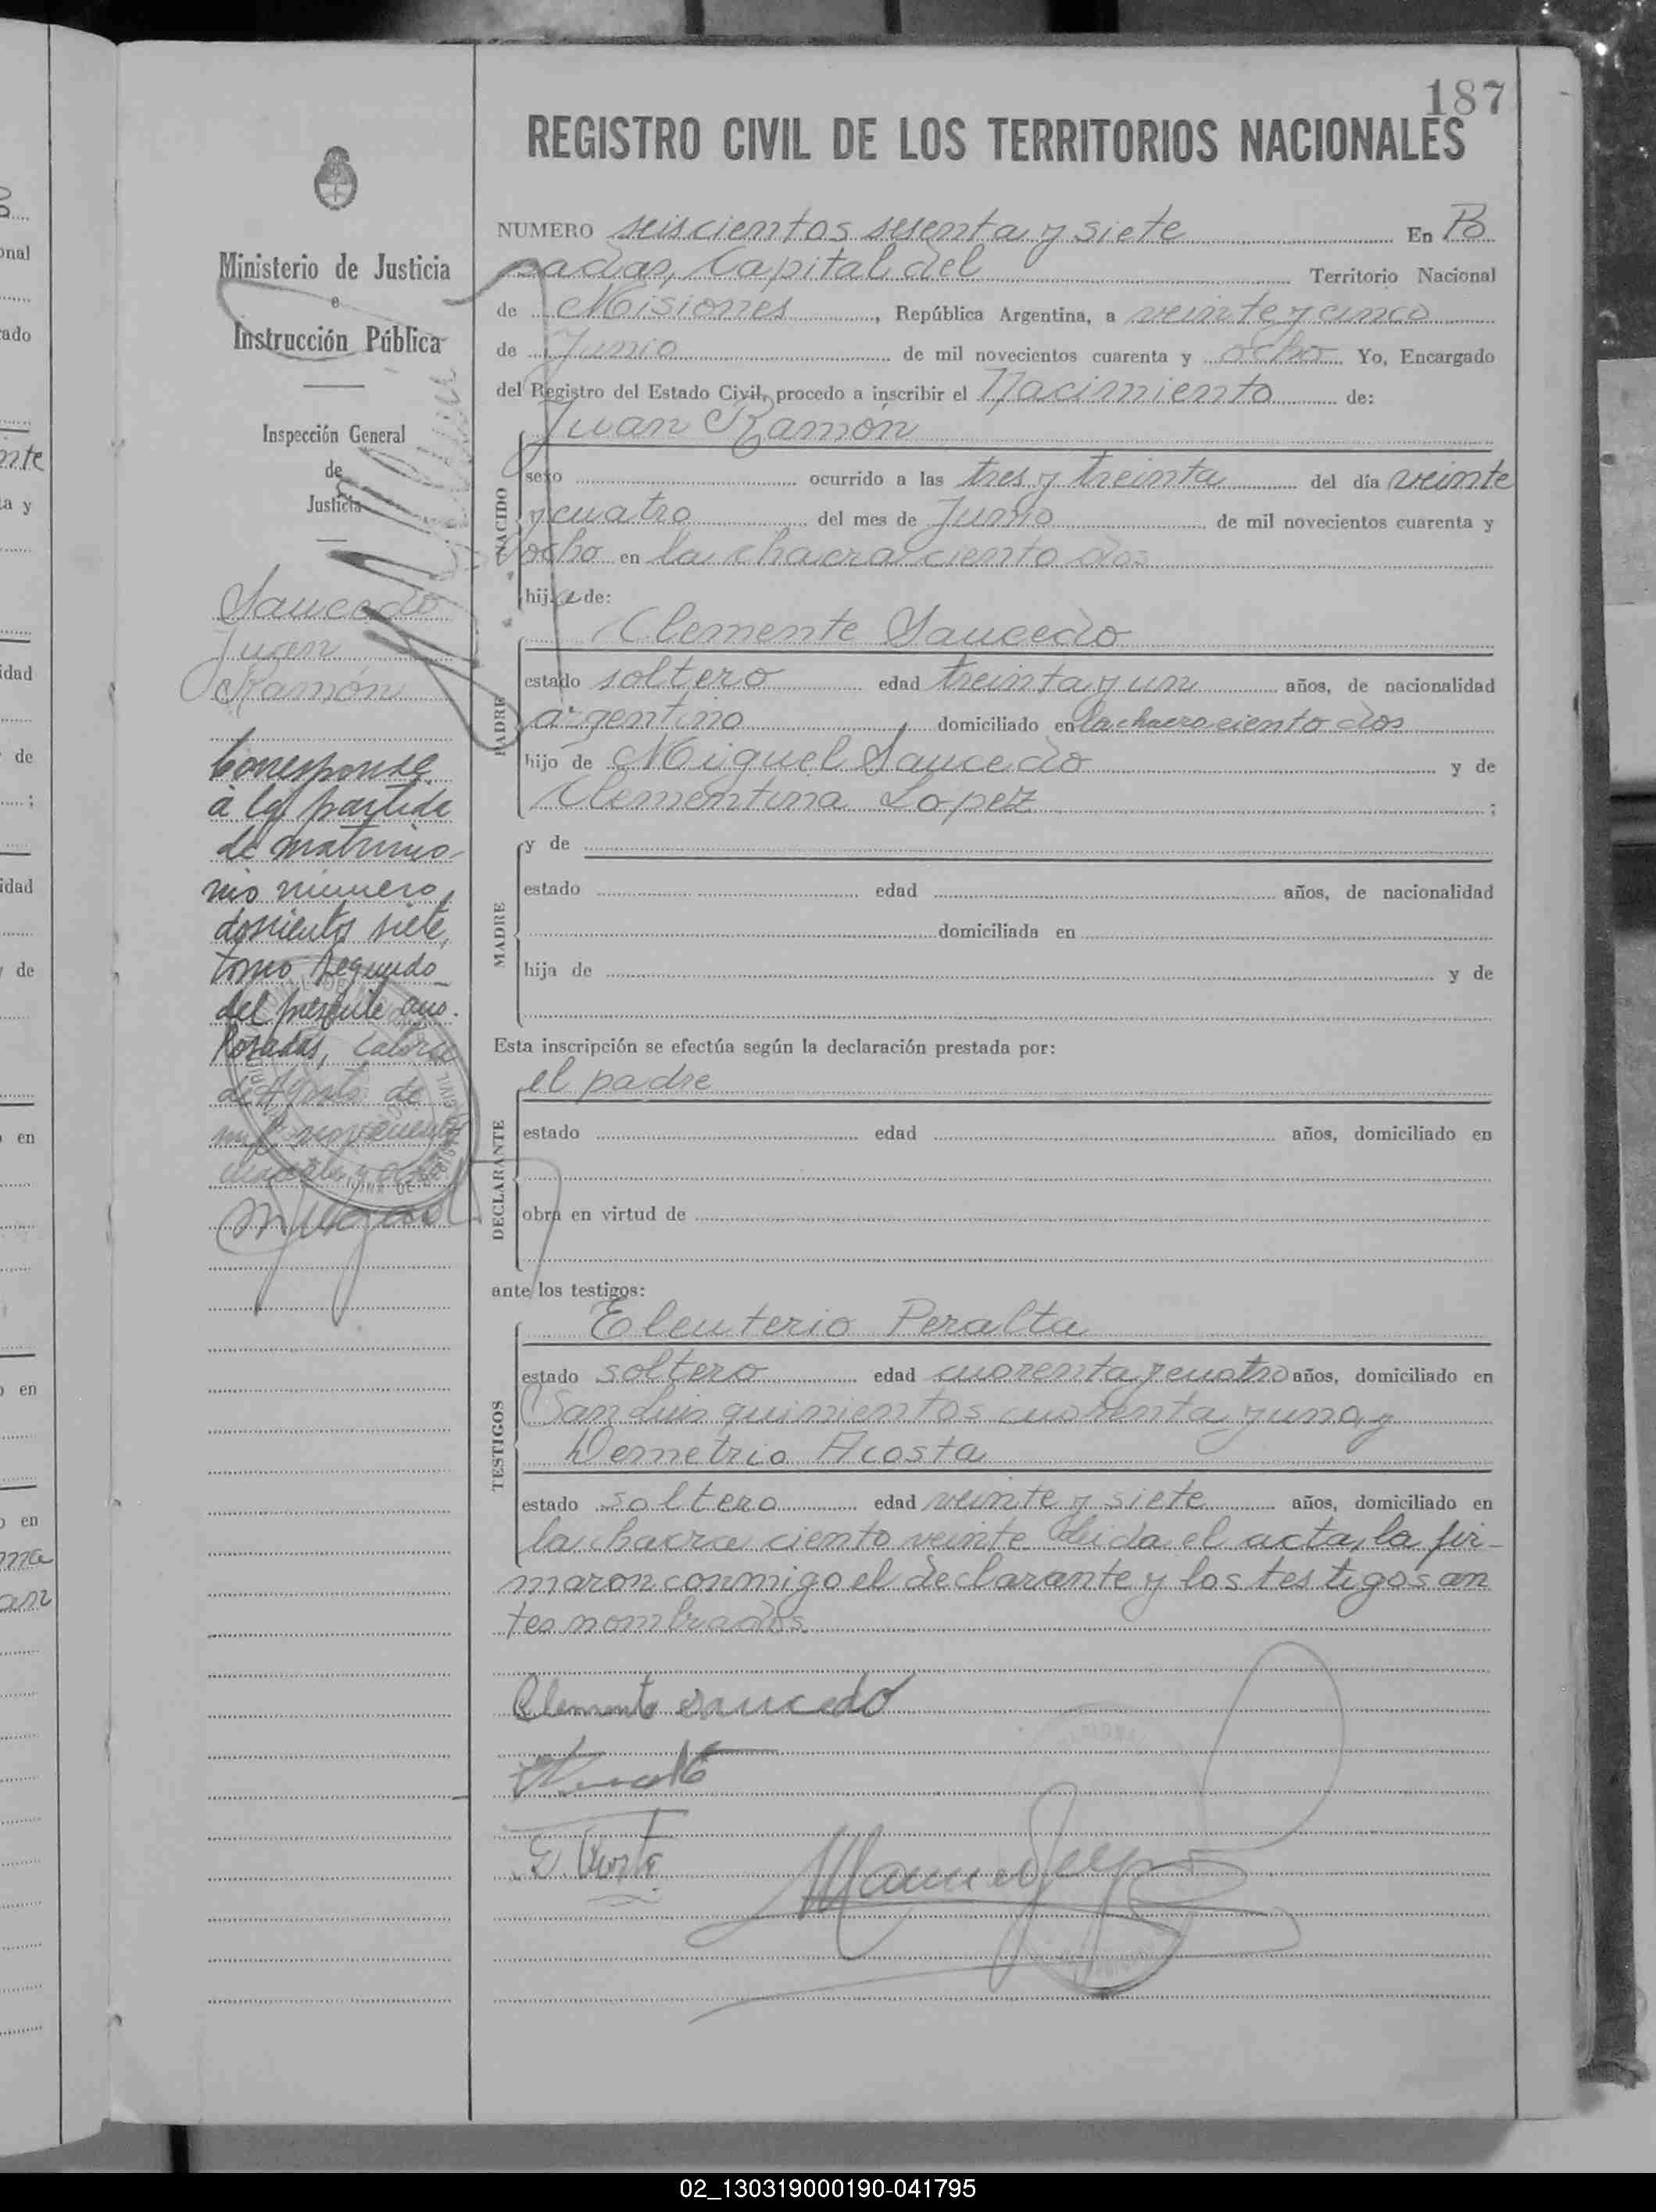 187
REGISTRO CIVIL DE LOS TERRITORIOS NACIONALES
Ministerio de Justicia
e
Instrucción Pública
Inspección General
de
Justicia
Saucedo
Juan
Ramón
Corresponde
a la partida
de matrimo-
nio número
doscientos siete,
tomo segundo
del presente año.
Posadas, catorce
de Agosto de
mil novecientos
cuarenta y ocho
NUMERO seiscientos sesenta y siete En Po
sadas, Capital del Territorio Nacional
de Misiones, República Argentina, a veinte y cinco
de Junio de mil novecientos cuarenta y ocho Yo, Encargado
del Registro del Estado Civil, procedo a inscribir el Nacimiento de:
Juan Ramón
NACIDO
sexo ocurrido a las tres y treinta del día veinte
y cuatro del mes de Junio, de mil novecientos cuarenta y
ocho en la chacra ciento dos
hijo de:
Clemente Saucedo
PADRE
estado soltero edad treinta y un años, de nacionalidad
argentino domiciliado en la chacra ciento dos
hijo de Miguel Saucedo y de
Clementina Lopez ;
MADRE
y de
estado edad años, de nacionalidad
domiciliada en
hija de y de
Esta inscripción se efectúa según la declaración prestada por:
el padre
DECLARANTE
estado edad años, domiciliado en
obra en virtud de
ante los testigos:
Eleuterio Peralta
TESTIGOS
estado soltero edad cuarenta y cuatro años, domiciliado en
San Luis quinientos cuarenta y uno y
Demetrio Acosta
estado soltero edad veinte y siete años, domiciliado en
la chacra ciento veinte Leida el acta, la fir-
maron conmigo el declarante y los testigos an
tes nombrados.
Clemente Saucedo
02_130319000190-041795